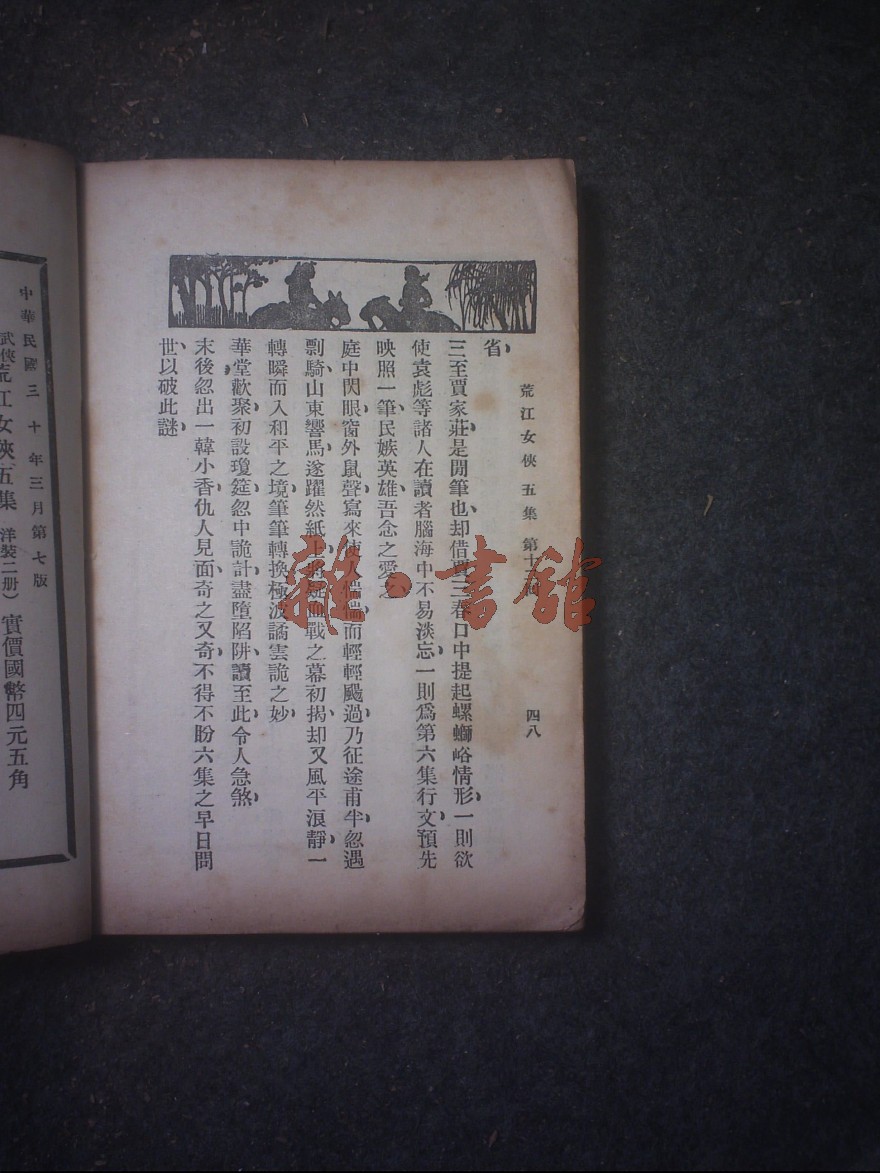 荒江女俠 五集 第十
四八
省、
三至賈家莊是閒筆也、却借賈三春口中提起螺螄峪情形、一則欲
使袁彪等諸人在讀者腦海中不易淡忘、一則爲第六集行文、預先
映照一筆、民族英雄、吾念之愛之、
庭中閃眼、窗外鼠聲、寫來使人惴惴、而輕輕颺過、乃征途甫半、忽遇
剽騎、山東響馬、遂躍然紙上、將疑血戰之幕初揭、却又風平浪靜、一
轉瞬而入和平之境、筆筆轉換、極波譎雲詭之妙、
華堂歡聚、初設瓊筵、忽中詭計、盡墮陷阱、讀至此、令人急煞、
末後忽出一韓小香、仇人見面、奇之又奇、不得不盼六集之早日問
世、以破此謎、
中華民國三十年三月第七版
武俠荒江女俠五集 (洋裝二册) 實價國幣四元五角
雜·書館